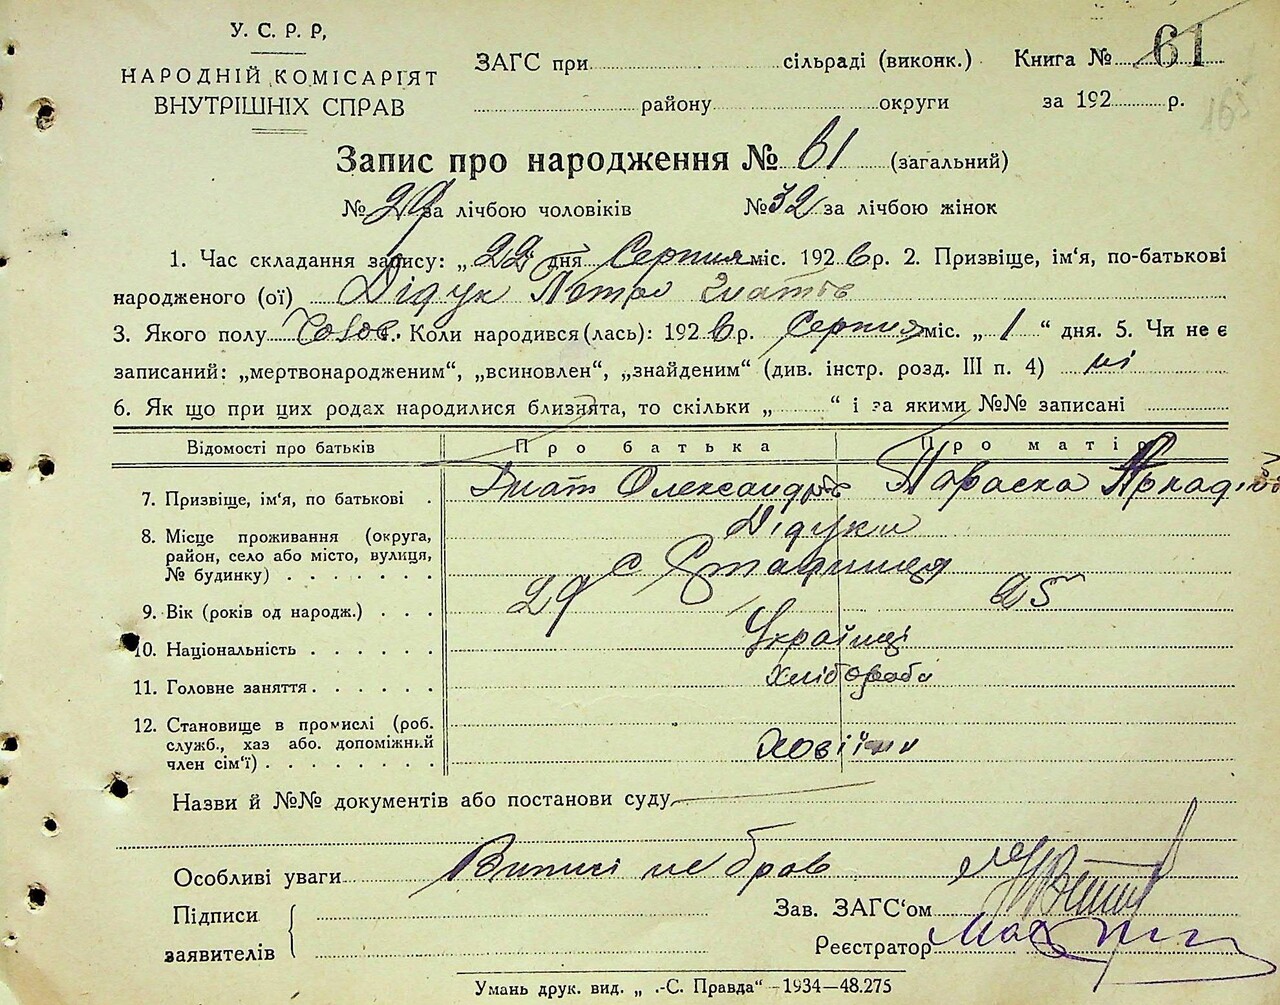 У. С. Р. Р,
НАРОДНІЙ КОМІСАРІЯТ
ВНУТРІШНІХ СПРАВ
ЗАГС при сільраді (виконк.) Книга № 61
району округи за 192 р.
163
Запис про народження № 61 (загальний)
№ 29 за лічбою чоловіків № 32 за лічбою жінок
1. Час складання запису: „ 22 дня Серпня міс. 1926 р. 2. Призвіще, ім'я, по-батькові
народженого (ої) Дідук Петро Гнатов
3. Якого полу Чолов. Коли народився (лась): 1926 р. Серпня міс. „ 1 “ дня. 5. Чи не є
записаний: „мертвонародженим“, „всиновлен“, „знайденим“ (див. інстр. розд. III п. 4) ні
6. Як що при цих родах народилися близнята, то скільки „ “ і за якими №№ записані
Відомості про батьків Про батька Про матір
7. Призвіще, ім'я, по батькові . Гнат Олександров Параска Аркадієв
Дідуки
8. Місце проживання (округа,
район, село або місто, вулиця,
№ будинку) . . . . . . . с
9. Вік (років од народж.) . . . 29 25
10. Національність . . . . . . Українці
11. Головне заняття . . . . . . Хлібороби
12. Становище в промислі (роб.
служб., хаз або. допоміжний
член сім'ї) . . . . . . . .
Назви й №№ документів або постанови суду
Особливі уваги Виписі не брав
Підписи
заявителів
Зав. ЗАГС‘ом
Реєстратор
Умань друк. вид. „ .-С. Правда“ —1934—48.275